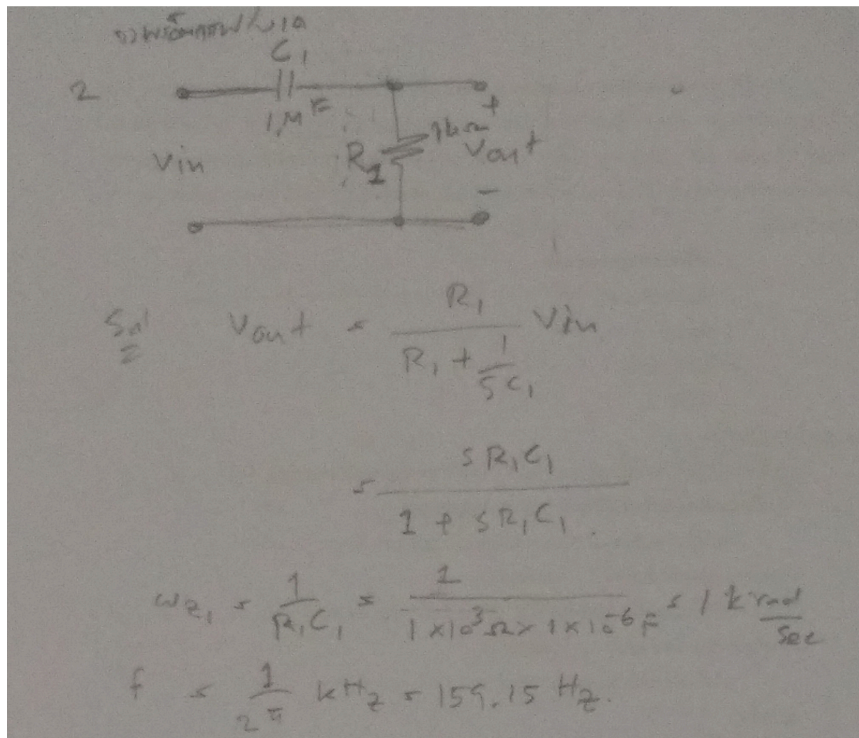 C₁
2
1MF
1kΩ
+
Vin
R₁
Vout
-
Sol
Vout = R₁ / (R₁ + 1/(SC₁)) Vin
= SR₁C₁ / (1 + SR₁C₁)
ωz₁ = 1/(R₁C₁) = 1 / (1×10³Ω × 1×10⁻⁶F) = 1 k rad/sec
f = 1/(2π) kHz = 159.15 Hz.